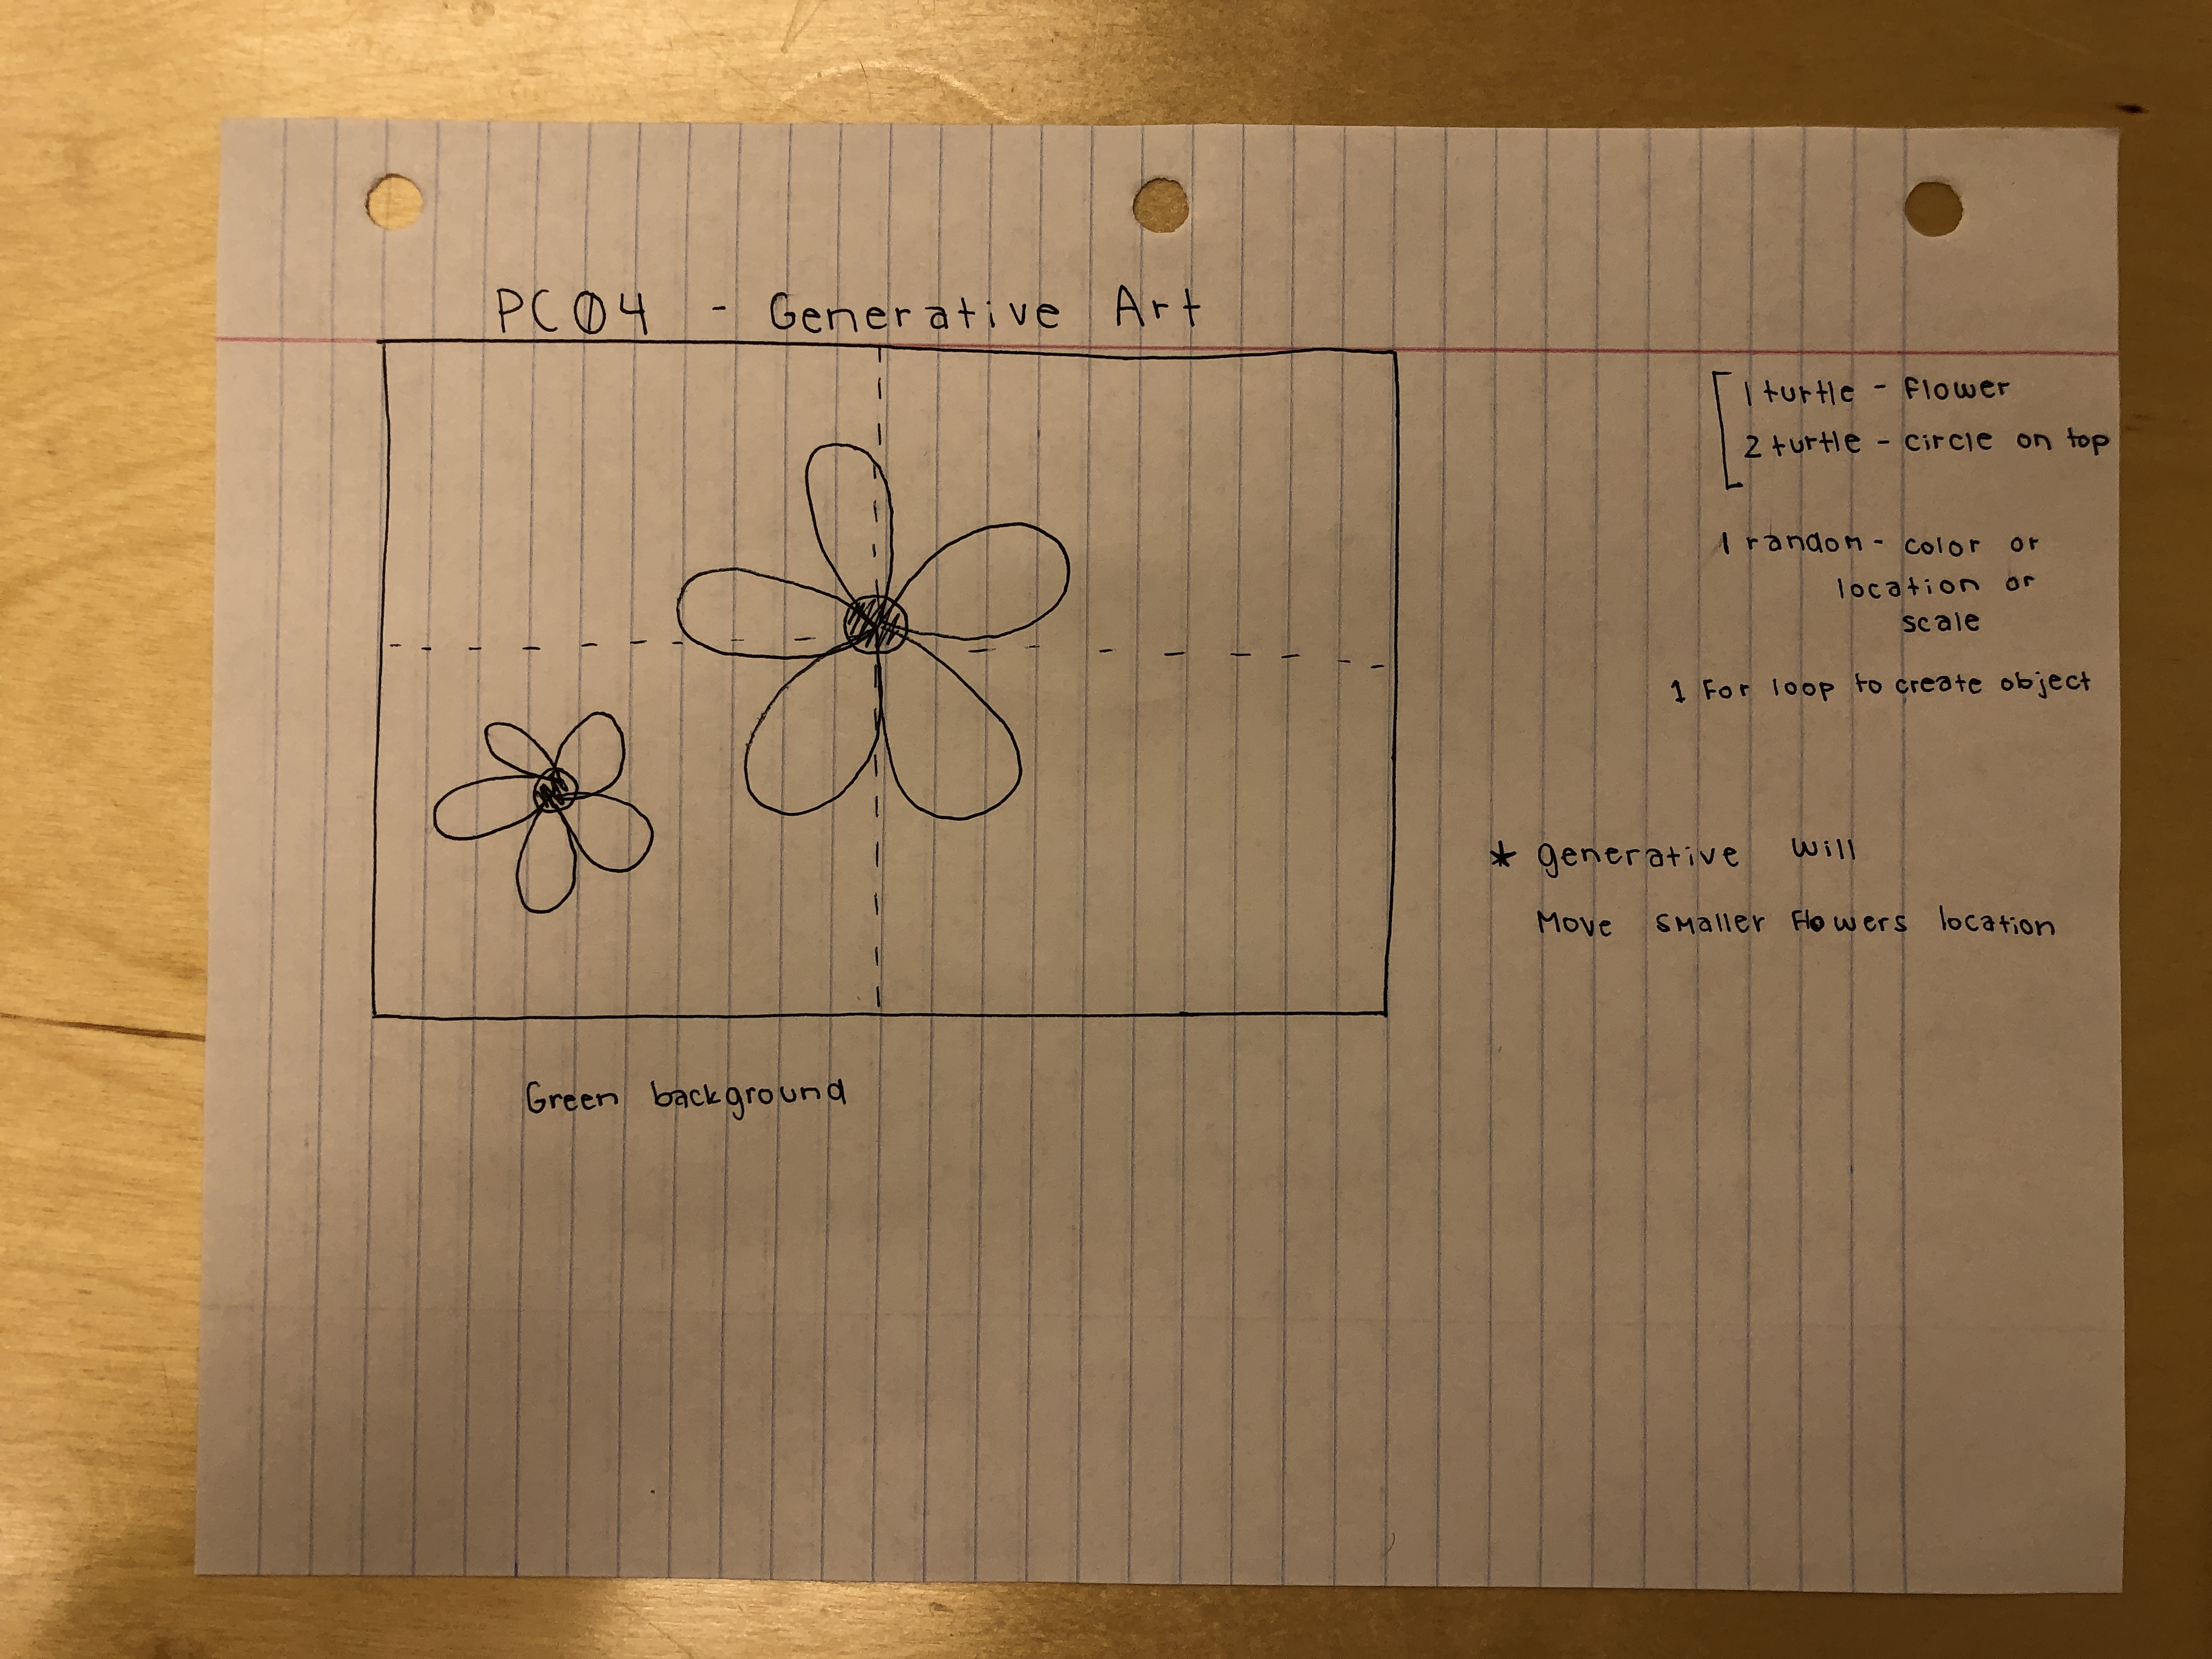 PC04 - Generative Art
1 turtle - flower
2 turtle - circle on top
1 random - color or
location or
scale
1 for loop to create object
* generative will
Move smaller flowers location
Green background